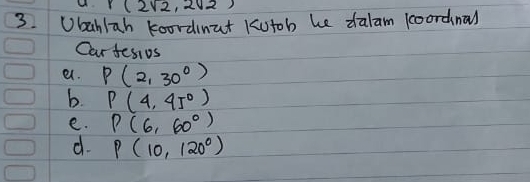 d. P (2√2, 2√2)
3. Ubahlah koordinat Kutob ke dalam koordinas
Cartesios
a. P (2, 30°)
b. P (4, 45°)
c. P (6, 60°)
d. P (10, 120°)